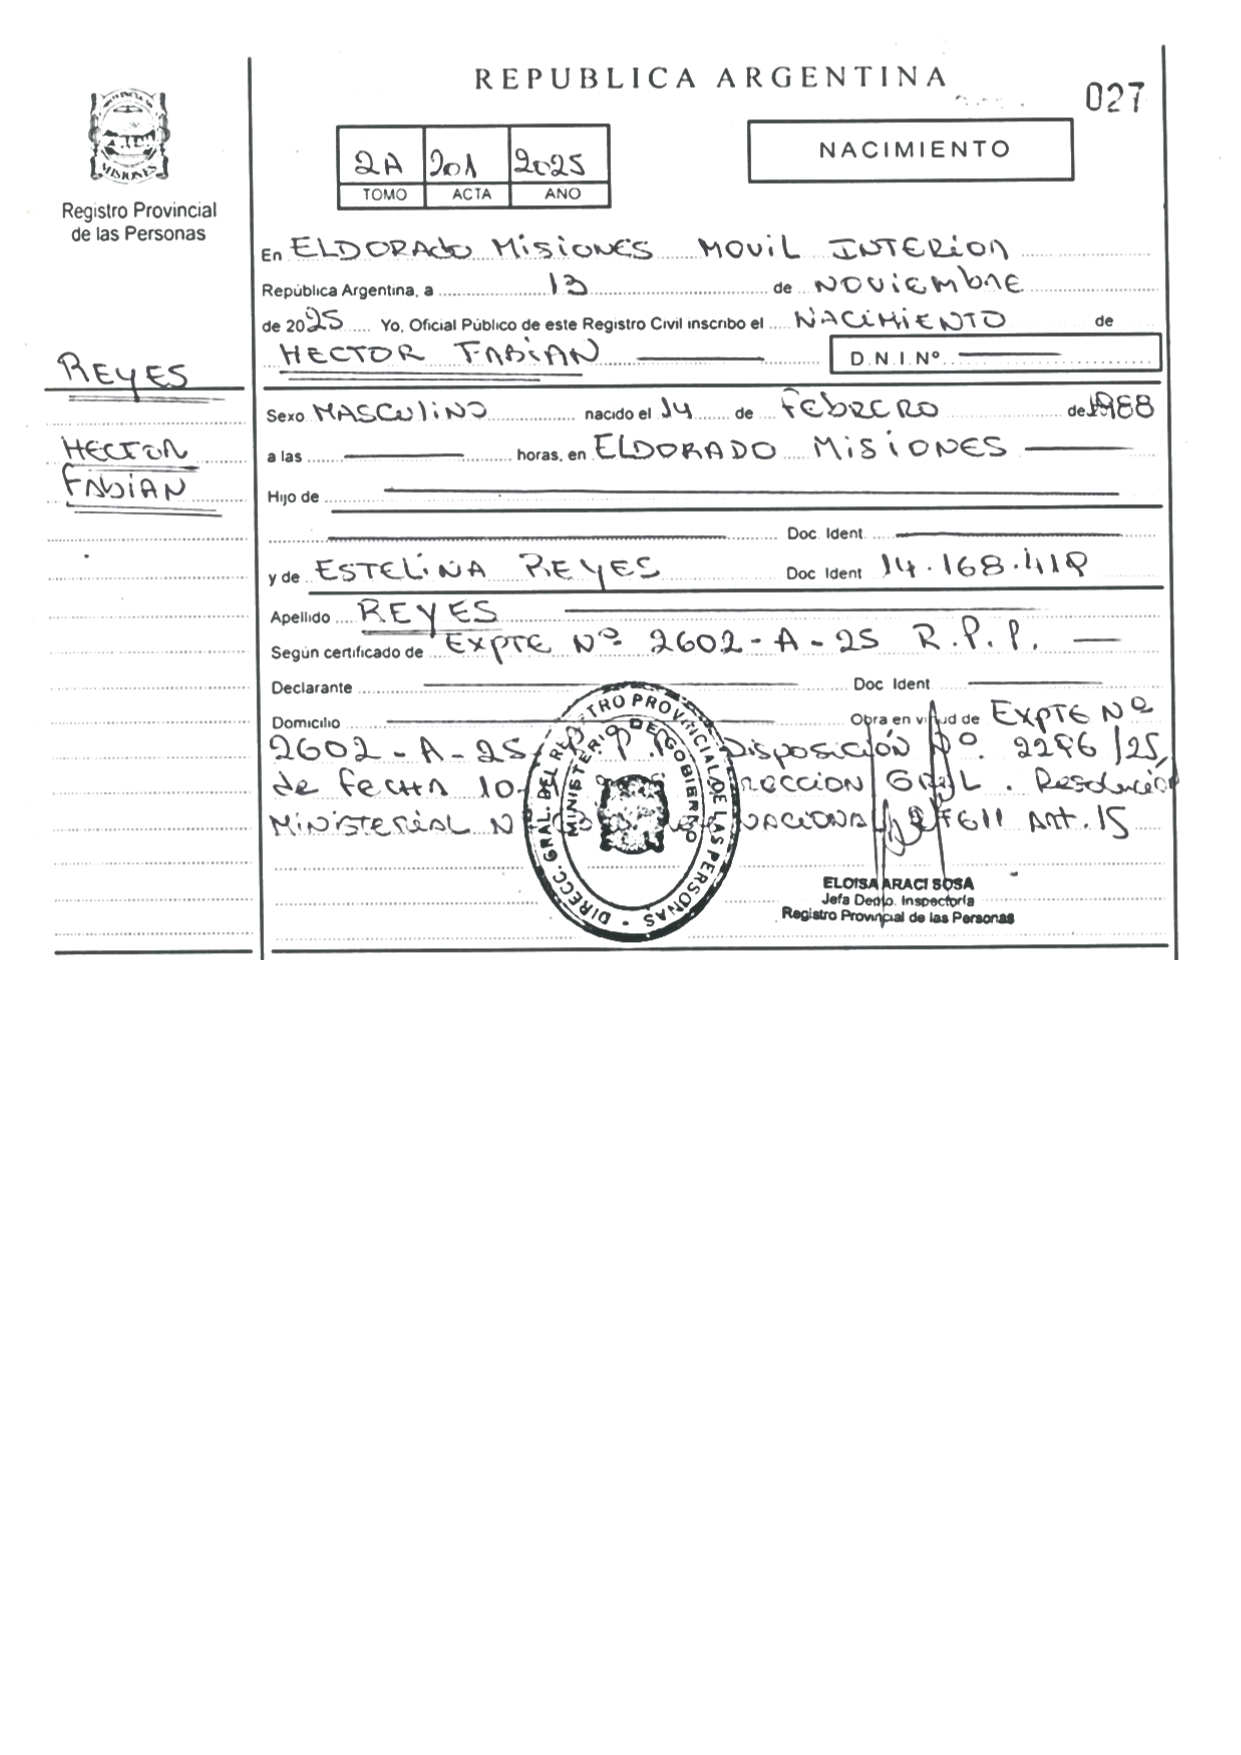 REPUBLICA ARGENTINA
027
MISIONES
Registro Provincial
de las Personas
2A 201 2025
TOMO ACTA ANO
NACIMIENTO
En ELDORADO MISIONES MOVIL INTERIOR
República Argentina, a 13 de NOVIEMBRE
de 2025 Yo, Oficial Público de este Registro Civil inscribo el NACIMIENTO de
HECTOR FABIAN D.N.I.Nº
REYES
HECTOR
FABIAN
Sexo MASCULINO nacido el 14 de FEBRERO de 1988
a las horas, en ELDORADO MISIONES
Hijo de
Doc Ident
y de ESTELINA REYES Doc Ident 14.168.419
Apellido REYES
Según certificado de EXPTE Nº 2602-A-25 R.P.P.
Declarante Doc Ident
Domicilio Obra en virtud de EXPTE Nº
2602-A-25 Disposición Nº. 2296/25,
de FECHA 10 GRAL. Resolución
MINISTERIAL N Art. 15
DIRECC. GRAL. DEL REGISTRO PROVINCIAL DE LAS PERSONAS
MINISTERIO DE GOBIERNO
ELOISA ARACI SOSA
Jefa Depto. Inspectoría
Registro Provincial de las Personas